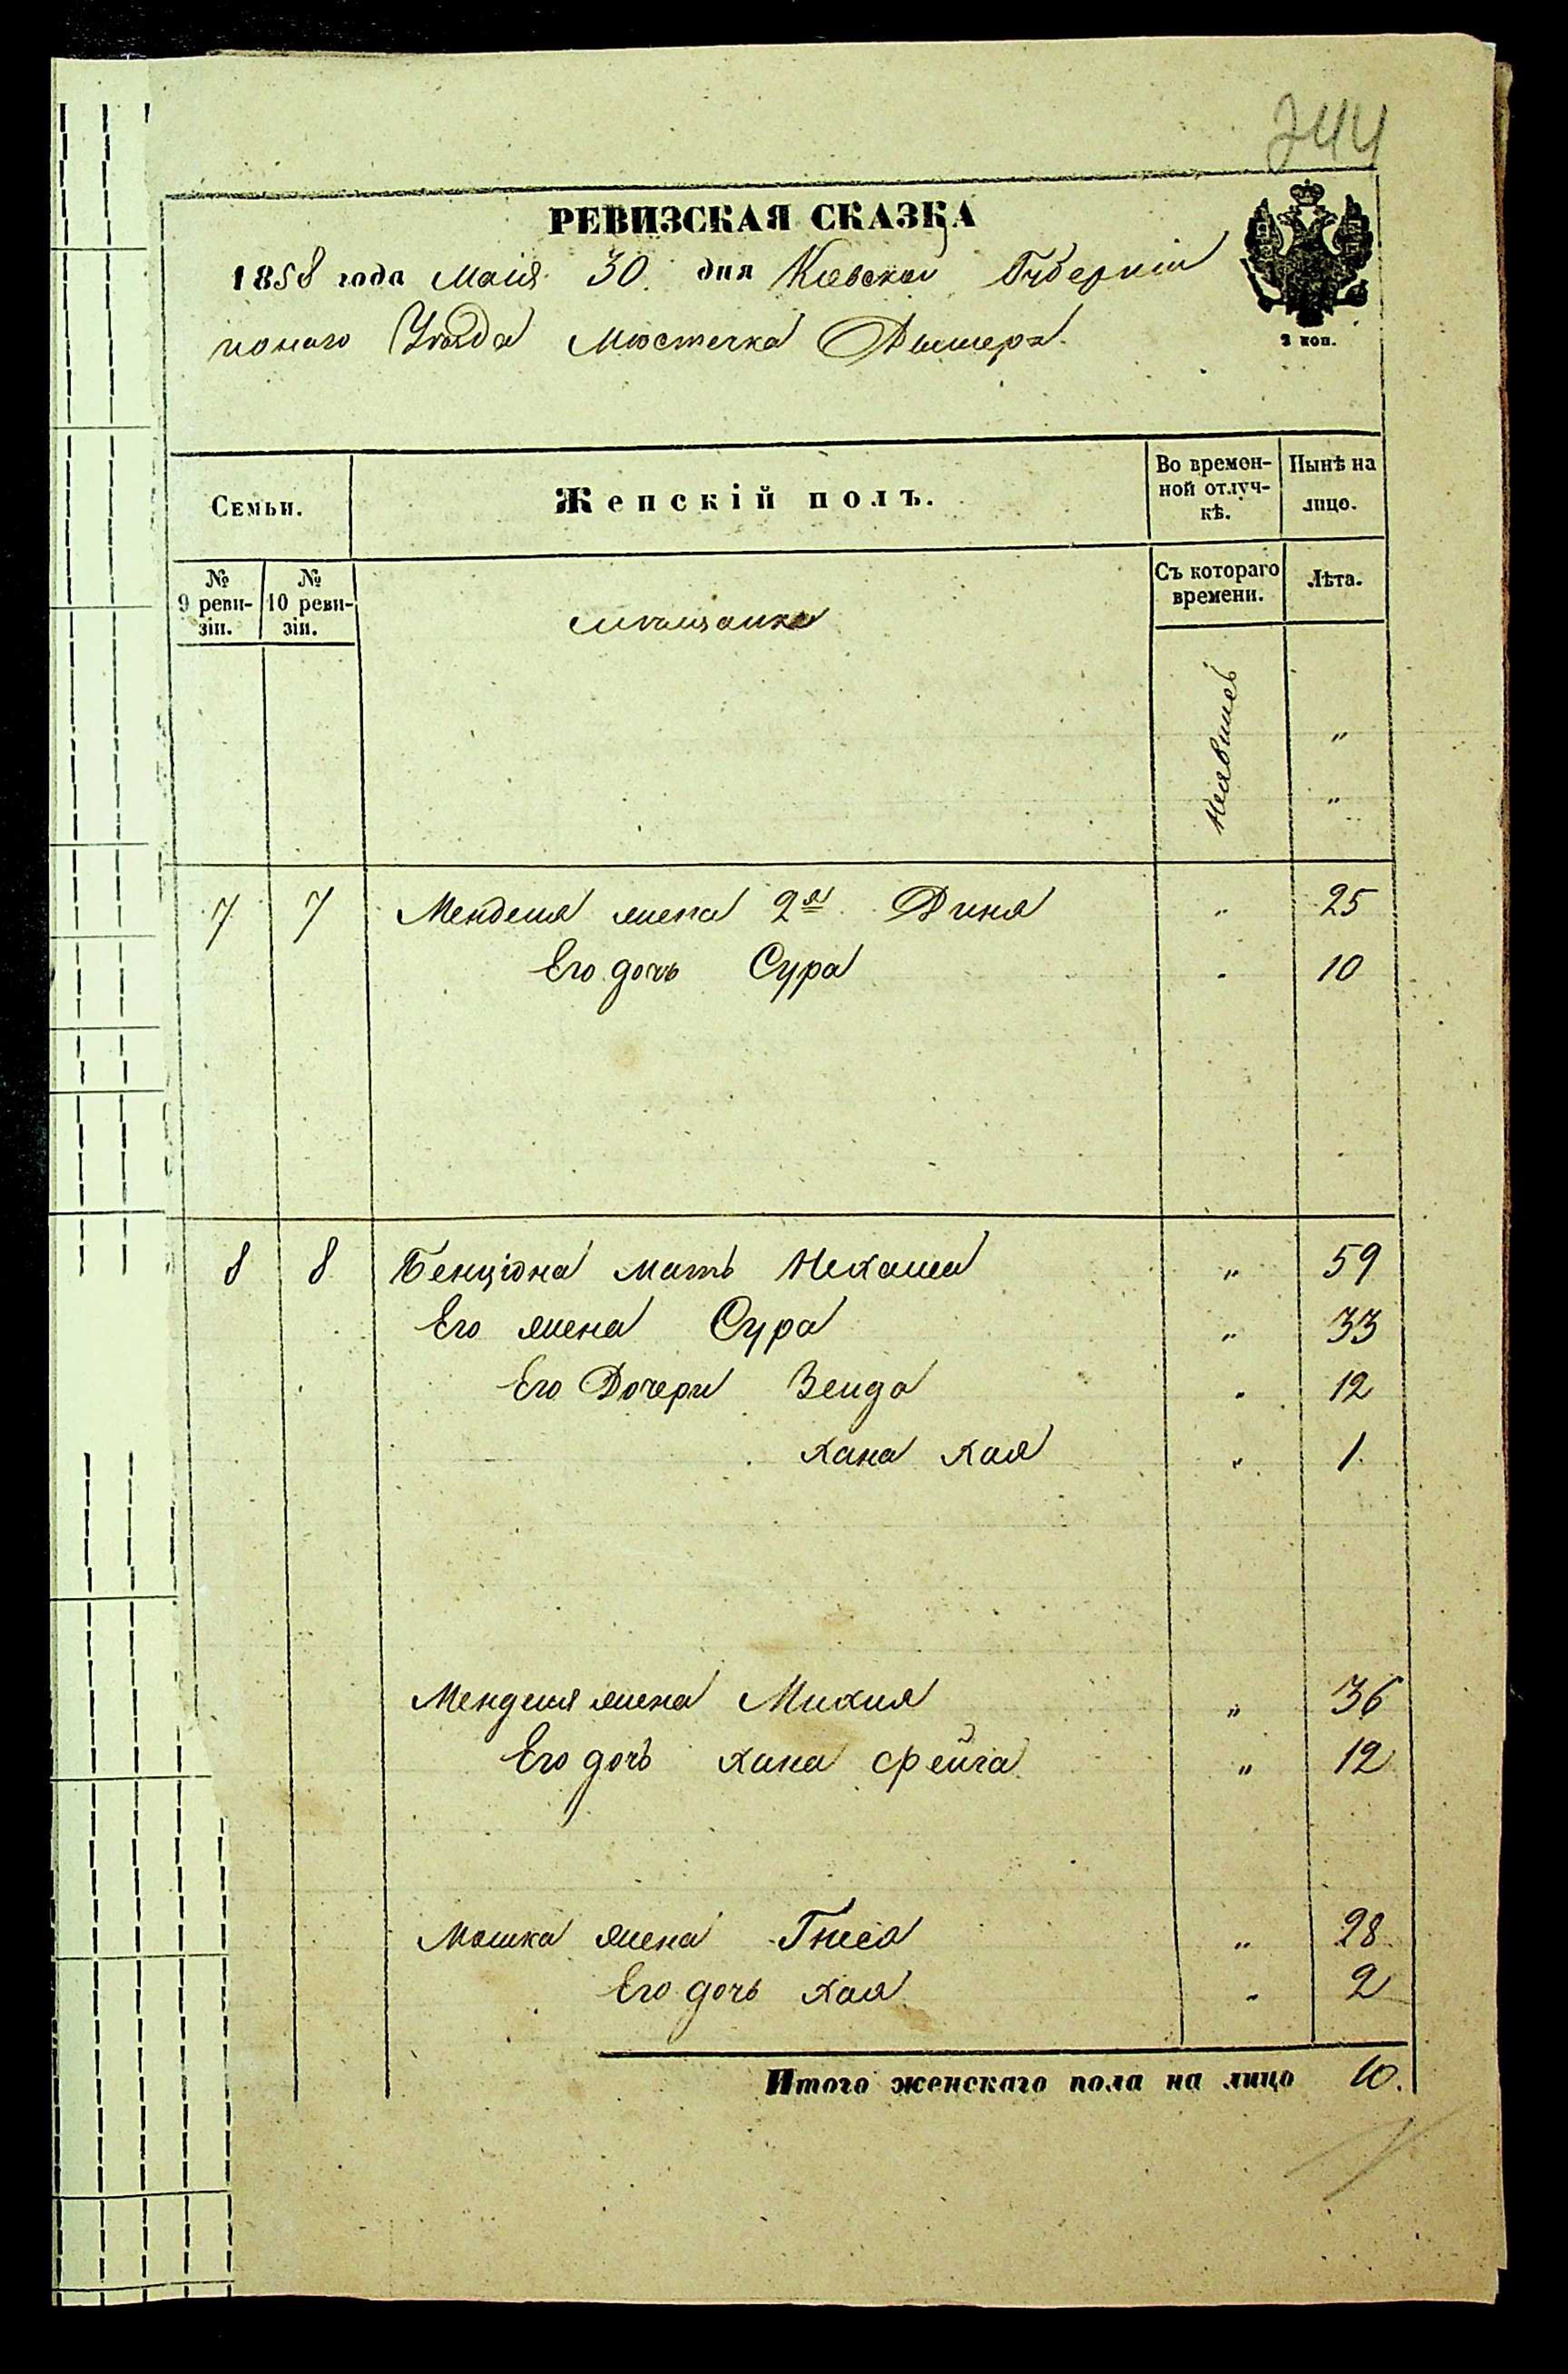 244
РЕВИЗСКАЯ СКАЗКА
1858 года маія 30. дня Кіевской Губерніи
наго Уѣзда Мѣстечка Дымера.
2 коп.
Семьи.
Женскій полъ.
Во времен-
ной отлуч-
кѣ.
Нынѣ на
лицо.
№
9 реви-
зіи.
№
10 реви-
зіи.
мѣщанка
Съ котораго
времени.
Лѣта.
"
"
7 7 Менделя жена 2я Диня " 25
Его дочь Сура " 10
8 8 Бенціона мать Нехама " 59
Его жена Сура " 33
Его Дочери Зелда " 12
Хана Хая " 1.
Менделя жена Михля " 36
Его дочь Хана Фейга " 12
Мошка жена Гнеся " 28
Его дочь Хая " 2
Итого женскаго пола на лицо 10.